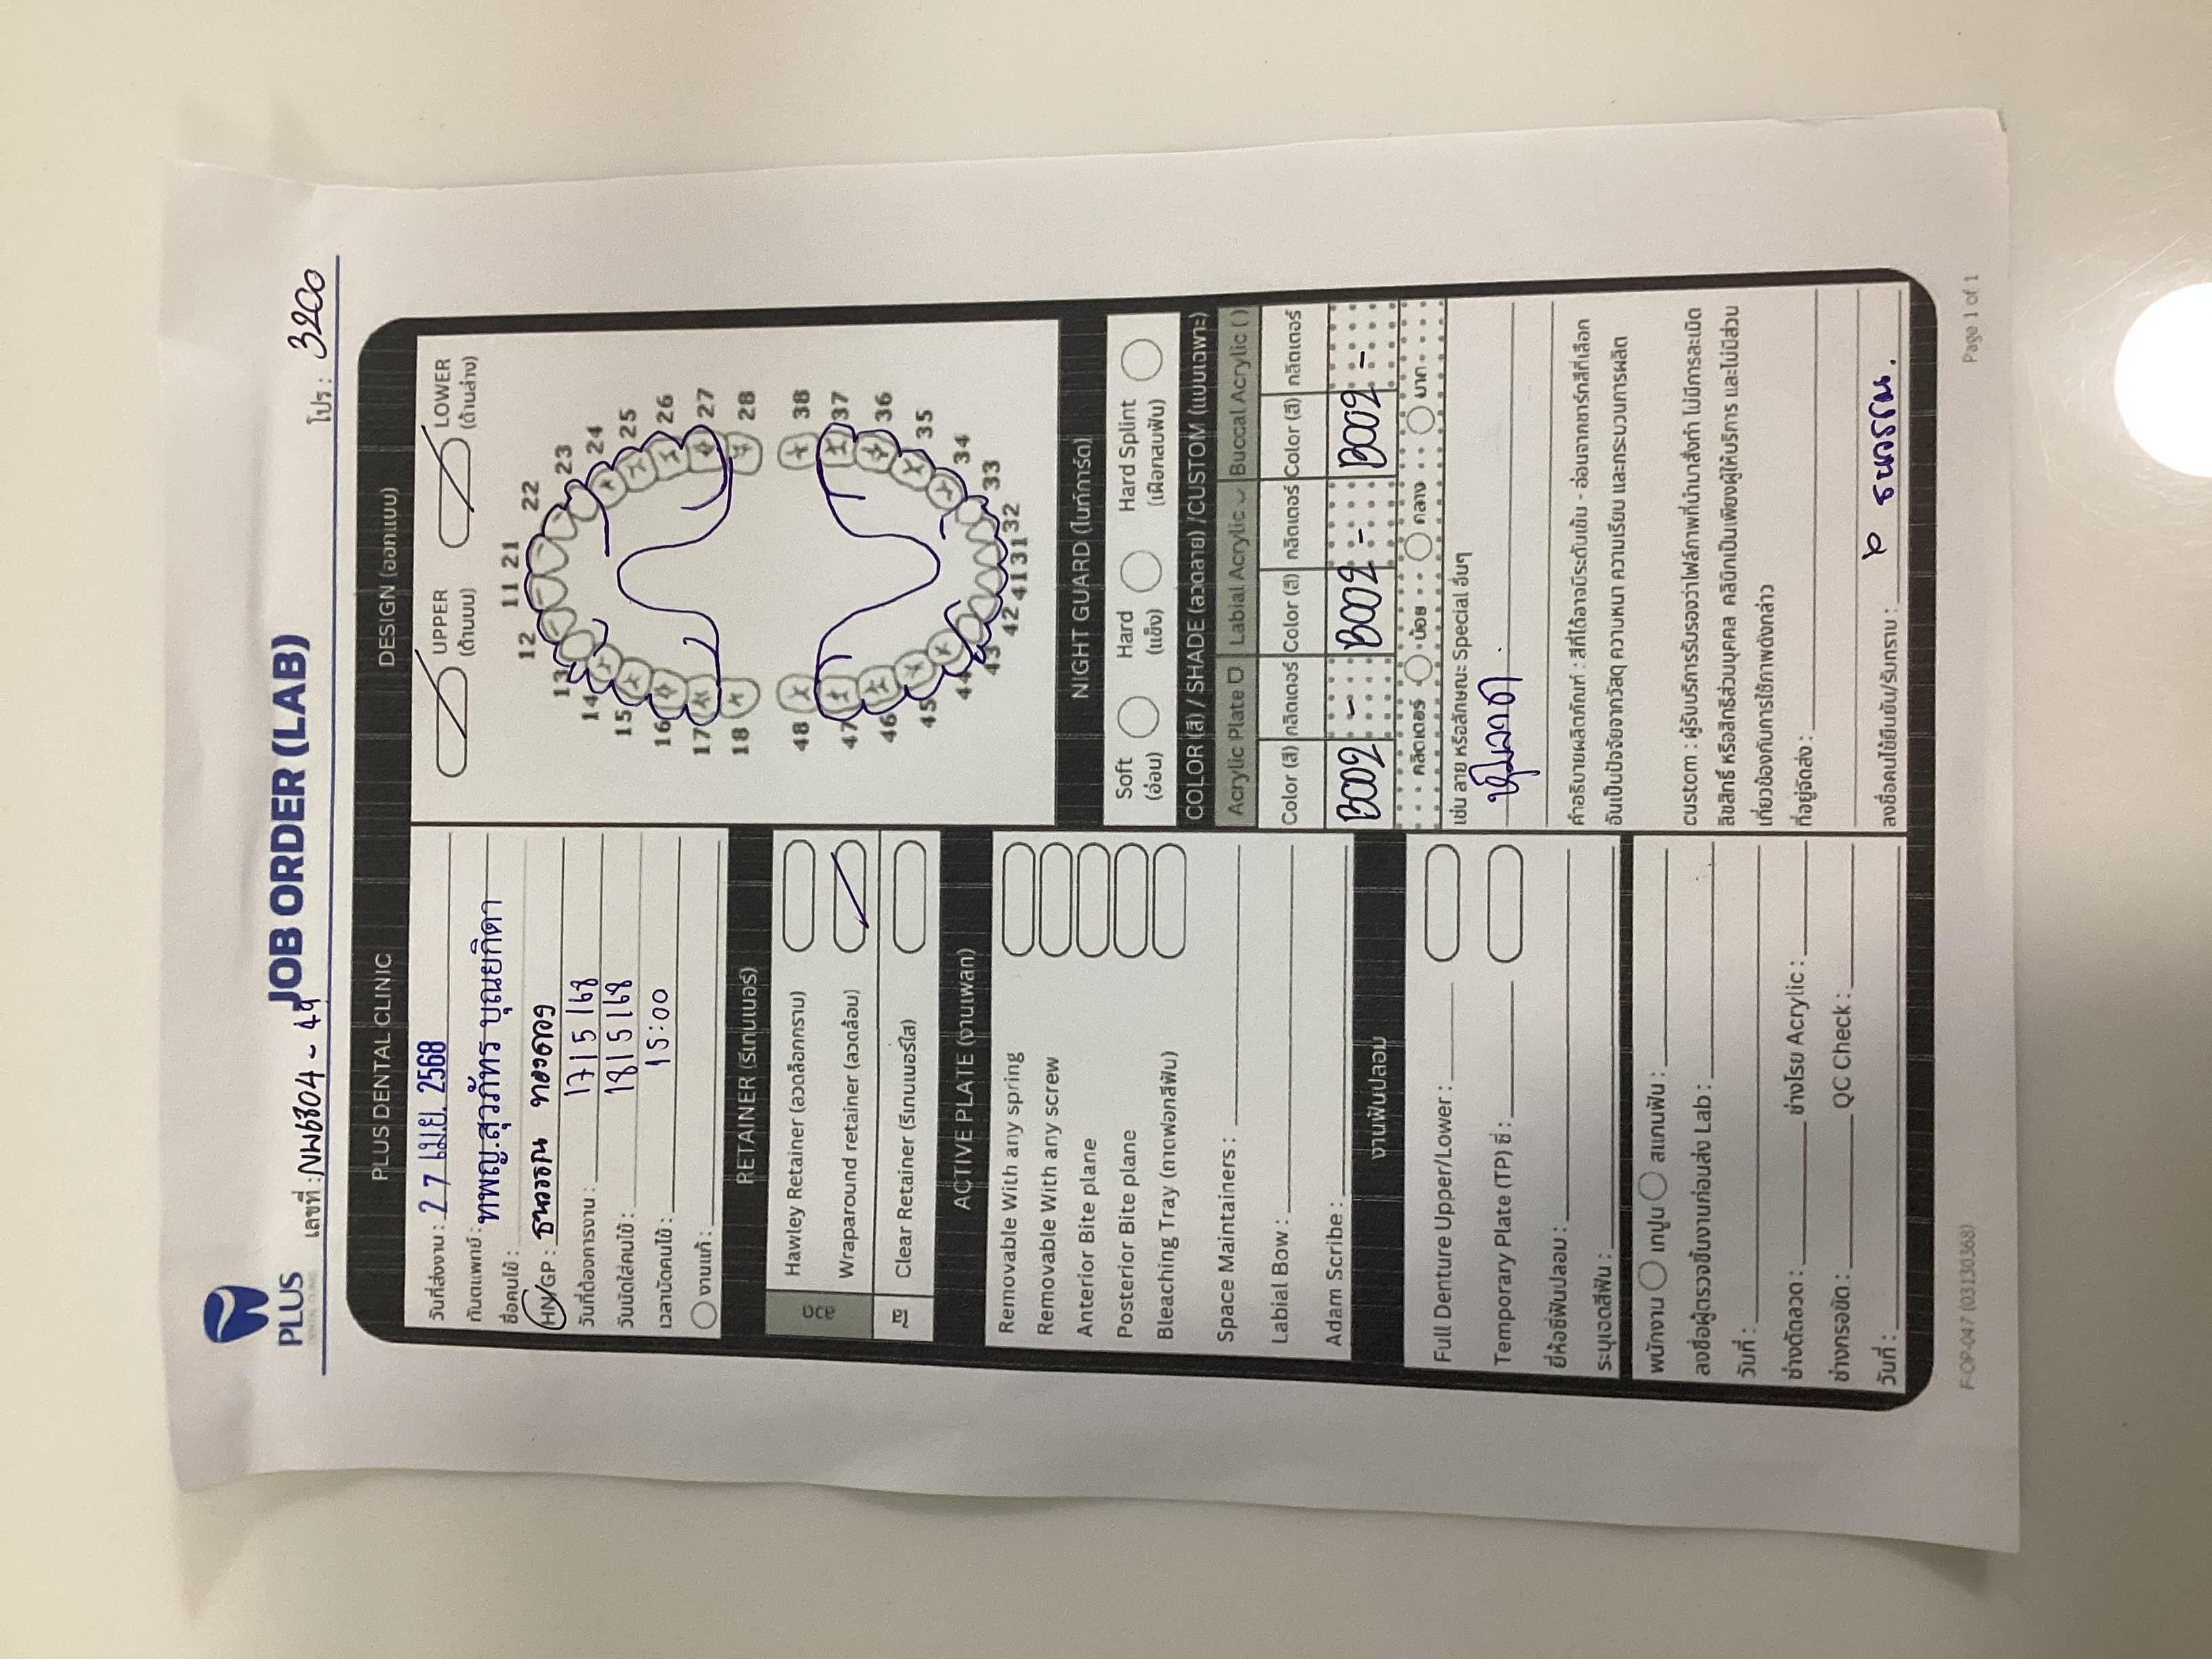 PLUS
DENTAL CLINIC
JOB ORDER (LAB)
เลขที่ : NW6804 - 49
โปร : 3200
PLUS DENTAL CLINIC
วันที่ส่งงาน : 27 เม.ย. 2568
ทันตแพทย์ : ทพญ.สุวภัทร บุณยกิดา
ชื่อคนไข้ :
HN/GP : ธนวรรณ ทองดวง
วันที่ต้องการงาน : 17/5/68
วันนัดใส่คนไข้ : 18/5/68
เวลานัดคนไข้ : 15:00
งานแก้ :
RETAINER (รีเทนเนอร์)
ลวด
Hawley Retainer (ลวดล็อกกราม)
Wraparound retainer (ลวดล้อม)
ใส
Clear Retainer (รีเทนเนอร์ใส)
ACTIVE PLATE (งานเพลท)
Removable With any spring
Removable With any screw
Anterior Bite plane
Posterior Bite plane
Bleaching Tray (ถาดฟอกสีฟัน)
Space Maintainers :
Labial Bow :
Adam Scribe :
งานฟันปลอม
Full Denture Upper/Lower :
Temporary Plate (TP) ซี่ :
ยี่ห้อซี่ฟันปลอม :
ระบุเฉดสีฟัน :
พนักงาน เทปูน สแกนฟัน :
ลงชื่อผู้ตรวจชิ้นงานก่อนส่ง Lab :
วันที่ :
ช่างดัดลวด : ช่างโรย Acrylic :
ช่างกรอขัด : QC Check :
วันที่ :
DESIGN (ออกแบบ)
UPPER LOWER
(ด้านบน) (ด้านล่าง)
11 21
12 22
13 23
14 24
15 25
16 26
17 27
18 28
48 38
47 37
46 36
45 35
44 34
43 33
42 41 31 32
NIGHT GUARD (ไนท์การ์ด)
Soft Hard Hard Splint
(อ่อน) (แข็ง) (เฝือกสบฟัน)
COLOR (สี) / SHADE (ลวดลาย) /CUSTOM (แบบเฉพาะ)
Acrylic Plate Labial Acrylic Buccal Acrylic ( )
Color (สี) กลิตเตอร์ Color (สี) กลิตเตอร์ Color (สี) กลิตเตอร์
B002 - B002 - B002 -
กลิตเตอร์ น้อย กลาง มาก
เช่น ลาย หรือลักษณะ Special อื่นๆ
หุ้มลวด
คำอธิบายผลิตภัณฑ์ : สีที่ได้อาจมีระดับเข้ม - อ่อนจากชาร์ทสีที่เลือก
อันเป็นปัจจัยจากวัสดุ ความหนา ความเรียบ และกระบวนการผลิต
custom : ผู้รับบริการรับรองว่าไฟล์ภาพที่นำมาสั่งทำ ไม่มีการละเมิด
ลิขสิทธิ์ หรือสิทธิส่วนบุคคล คลินิกเป็นเพียงผู้ให้บริการ และไม่มีส่วน
เกี่ยวข้องกับการใช้ภาพดังกล่าว
ที่อยู่จัดส่ง :
ลงชื่อคนไข้ยืนยัน/รับทราบ : ธนวรรณ.
F-OP-047 (03130368)
Page 1 of 1